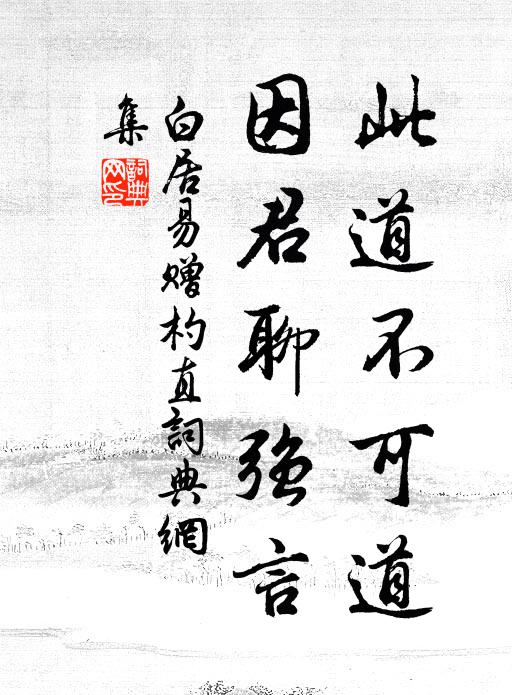 此道不可道
因君聊強言
白居易赠杓直詞典網
集
詞典
网印